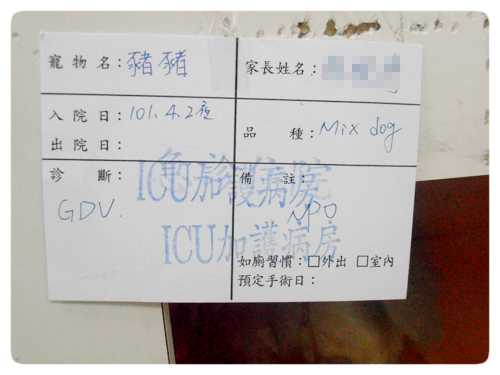 寵物名：豬豬
家長姓名：
入院日：101.4.2夜
出院日：
品種：Mix dog
診斷：
GDV.
備註：
NPO
ICU加護病房
ICU加護病房
如廁習慣：□外出 □室內
預定手術日：